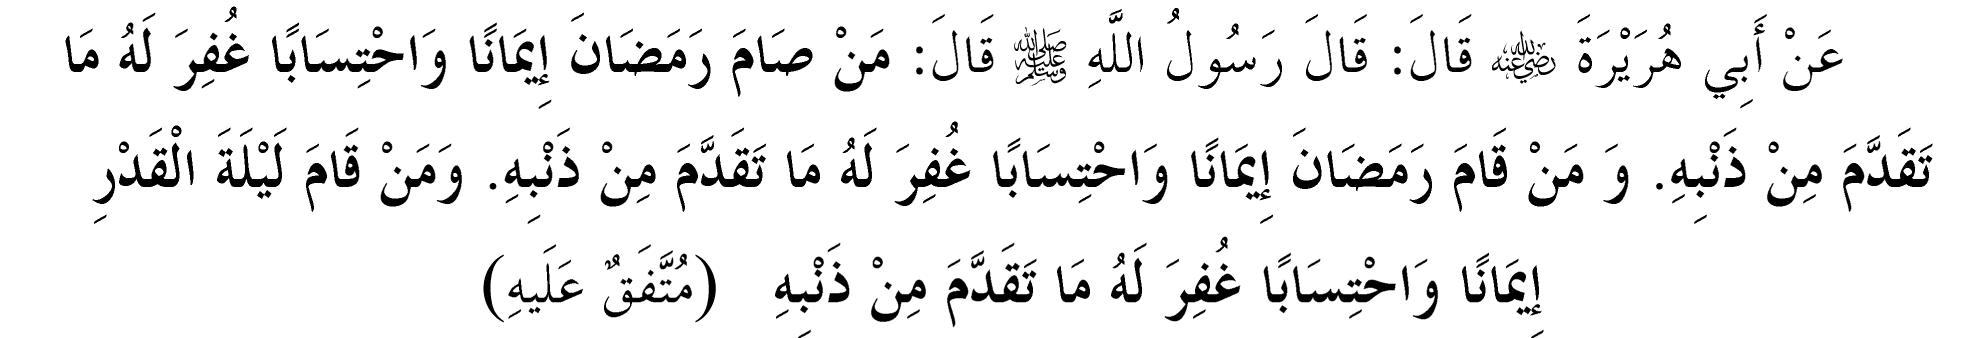 عَنْ أَبِي هُرَيْرَةَ ؓ قَالَ: قَالَ رَسُولُ اللَّهِ ﷺ قَالَ: مَنْ صَامَ رَمَضَانَ إِيمَانًا وَاحْتِسَابًا غُفِرَ لَهُ مَا
تَقَدَّمَ مِنْ ذَنْبِهِ. وَ مَنْ قَامَ رَمَضَانَ إِيمَانًا وَاحْتِسَابًا غُفِرَ لَهُ مَا تَقَدَّمَ مِنْ ذَنْبِهِ. وَمَنْ قَامَ لَيْلَةَ الْقَدْرِ
إِيمَانًا وَاحْتِسَابًا غُفِرَ لَهُ مَا تَقَدَّمَ مِنْ ذَنْبِهِ (مُتَّفَقٌ عَلَيهِ)